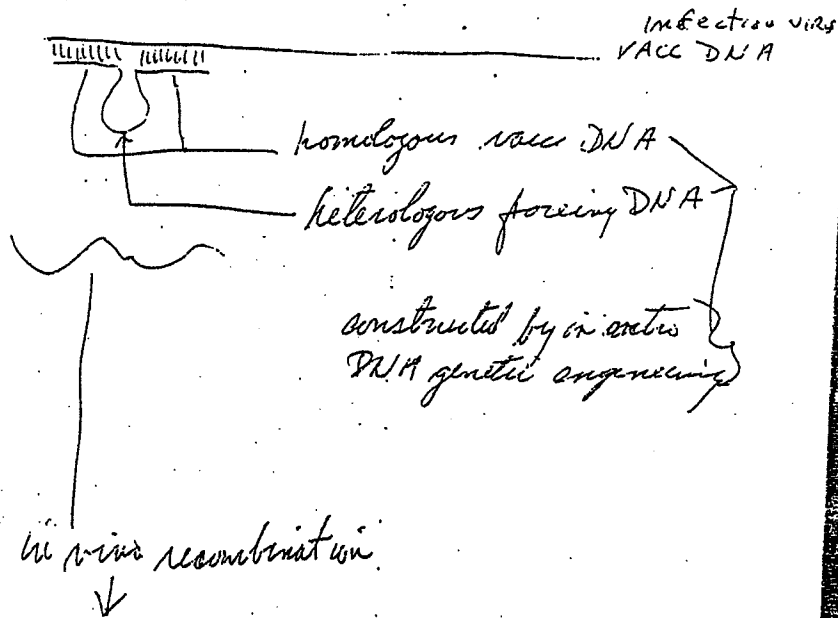 Infection virus
VACC DNA
homologous vacc DNA
heterologous foreing DNA
constructed by in
DNA genetic engeneering
in vivo recombination